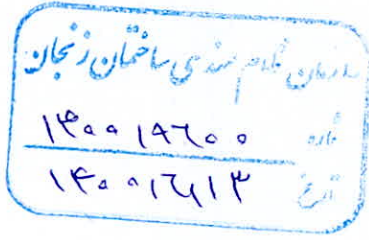 سازمان نظام مهندسی ساختمان زنجان
شماره
تاریخ ۱۴۰۰/۶/۱۳